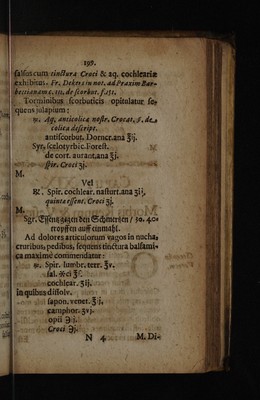 199.
salsus cum tinctura Croci & aq. cochleariæ
exhibitus. Fr. Dekers in not. ad Praxim Bar-
bettianam c. de scorbut. f.
Torminibus scorbuticis opitulatur se-
quens julapium:
℞. Aq. anticolicæ nostr. Crocat. s. de
colica descript.
antiscorbut. Dorncr. ana ℥ij.
Syr. scelotyrbic. Forest.
de cort. aurant. ana ℥j.
spir. Croci ʒj.
M.
Vel
℞. Spir. cochlear. nasturt. ana ʒij.
quintæ essent. Croci ʒj.
M.
Sgr. Essentz gegen den Schmertzen / 30. 40.
tropffen auff einmahl.
Ad dolores articulorum vagos in nucha,
cruribus, pedibus, sequens tinctura balsami-
ca maximè commendatur:
℞. Spir. lumbr. terr. ℥v.
sal. ✳ci ℥ß.
cochlear. ℥ij.
in quibus dissolv.
sapon. venet. ℥ij.
camphor. ʒvj.
opii ℈j.
Croci ℈j.
N 4 M. Di-